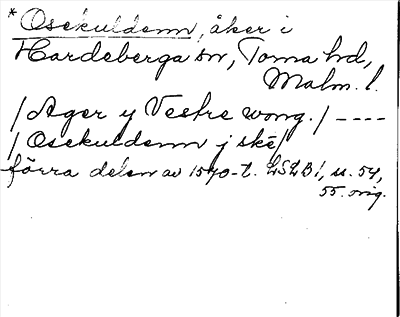 * Osekuldenn, åker i
Hardeberga sn, Torna hd,
Malm. l.
/Ager y Vestre wong./ ----
/Osekuldenn j ske/
förra delen av 1570-t. LSLB1, u. 54,
55. orig.